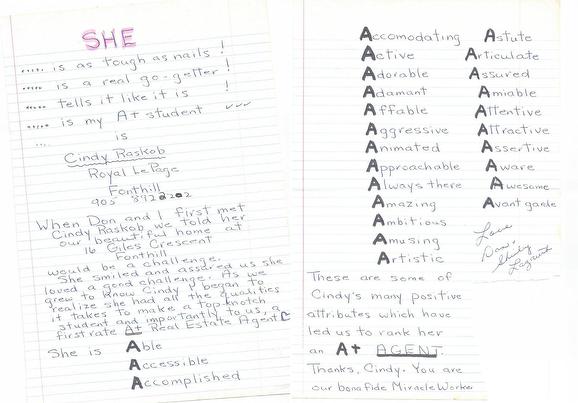 SHE
..... is as tough as nails !
..... is a real go-getter !
..... tells it like it is !
..... is my A+ student ✓✓✓
... is
Cindy Raskob
Royal LePage
Fonthill
905
When Don and I first met
Cindy Raskob we told her
our beautiful home at
16 Giles Crescent
Fonthill
would be a challenge.
She smiled and assured us she
loved a good challenge. As we
grew to know Cindy I began to
realize she had all the qualities
it takes to make a top-knotch
student and importantly to us, a
first rate A+ Real Estate Agent
She is Able
Accessible
Accomplished
Accomodating
Active
Adorable
Adamant
Affable
Aggressive
Animated
Approachable
Always there
Amazing
Ambitious
Amusing
Artistic
Astute
Articulate
Assured
Amiable
Attentive
Attractive
Assertive
Aware
Awesome
Avant garde
Love
Don &
Shirley
These are some of
Cindy's many positive
attributes which have
led us to rank her
an A+ AGENT.
Thanks, Cindy. You are
our bonafide Miracle Worker